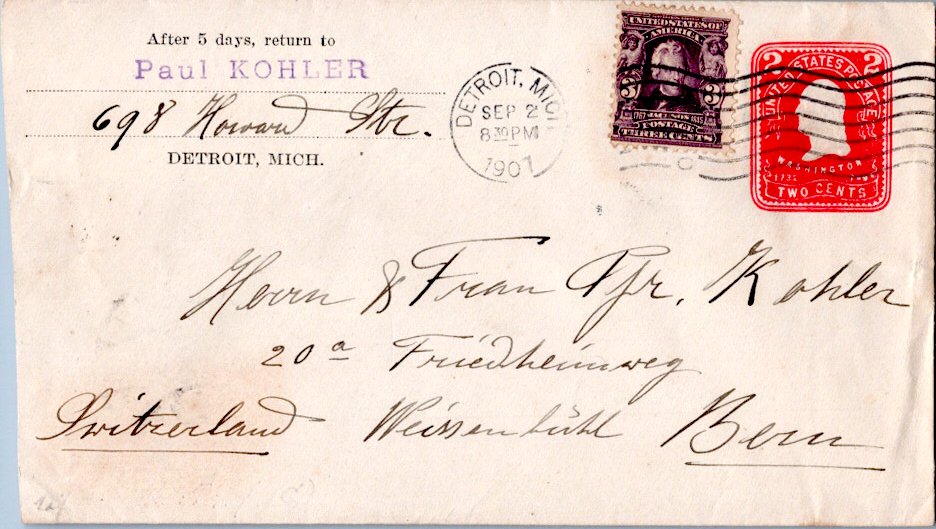 After 5 days, return to
Paul KOHLER
698 Howard Str.
DETROIT, MICH.
DETROIT, MICH.
SEP 2
8 30 PM
1907
UNITED STATES OF
AMERICA
3 3
1767 JACKSON 1845
POSTAGE
THREE CENTS
2 UNITED STATES POSTAGE 2
WASHINGTON
1732 1799
TWO CENTS
Herrn & Frau Pfr. Kohler
20a Friedheimweg
Switzerland Weissenbühl Bern